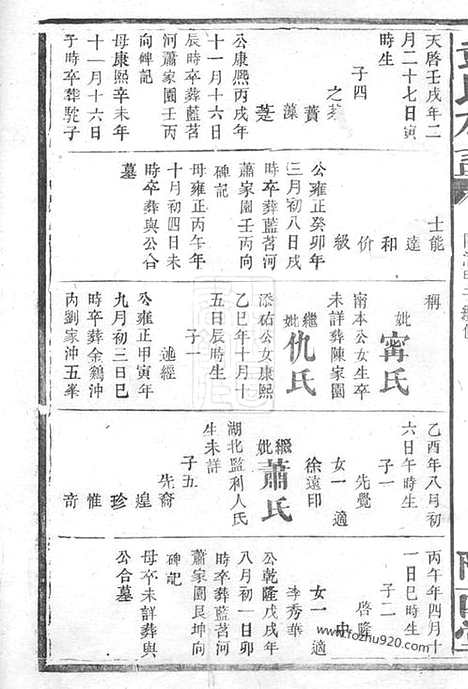 天啓壬戌年二
月二十七日寅
時生
子四
之棻
蕡
藻
莛
公康熙丙戌年
十一月十六日
辰時卒葬藍茖
河蕭家園壬丙
向碑記
母康熙辛未年
十一月十六日
子時卒葬駝子
士能
達
和
价
級
公雍正癸卯年
三月初八日戌
時卒葬藍茖河
蕭家園壬丙向
碑記
母雍正丙午年
十月初四日未
時卒葬與公合
墓
稱
妣甯氏
南本公女生卒
未詳葬陳家園
繼妣仇氏
添祐公女康熙
乙巳年十月十
五日辰時生
子一
述經
公雍正甲寅年
九月初三日巳
時卒葬金鷄沖
內劉家沖五峯
乙酉年八月初
六日午時生
子一
先覺
女一適
徐遠印
繼妣蕭氏
湖北監利人氏
生未詳
子五
先裔
遑
珍
惟
奇
丙午年四月十
一日巳時生
子二
啓隆
忠
女一適
李秀華
公乾隆戊戌年
八月初一日卯
時卒葬藍茖河
蕭家園艮坤向
碑記
母卒未詳葬與
公合墓
www.fozhu920.com